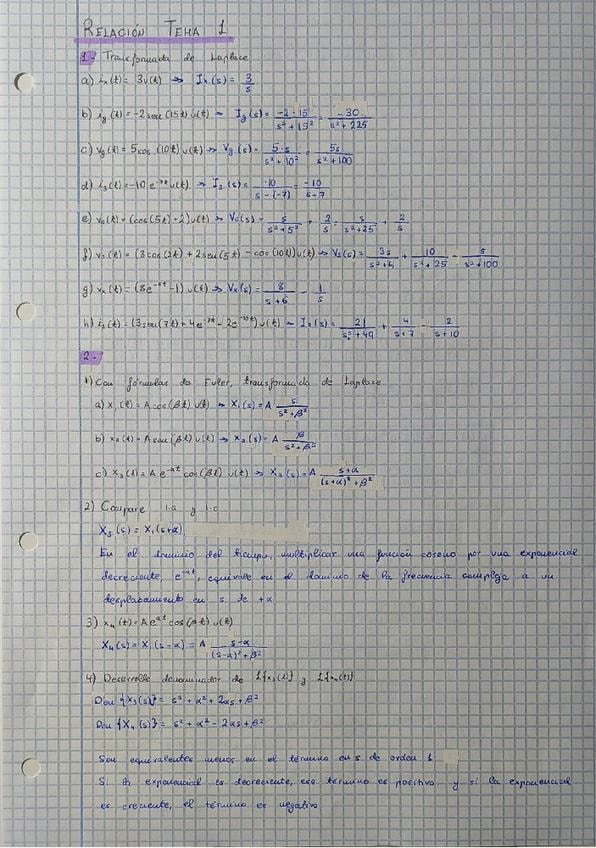 RELACIÓN TEMA 1
1.- Transformada de Laplace
a) ix(t) = 3u(t) → Ix(s) = 3/s
b) ig(t) = -2 sen(15t) u(t) → Ig(s) = -2·15/(s²+15²) = -30/(s²+225)
c) vg(t) = 5 cos(10t) u(t) → Vg(s) = 5·s/(s²+10²) = 5s/(s²+100)
d) i3(t) = -10 e^-7t u(t) → I3(s) = -10/(s-(-7)) = -10/(s+7)
e) vc(t) = (cos(5t) + 2) u(t) → Vc(s) = s/(s²+5²) + 2/s = s/(s²+25) + 2/s
f) v2(t) = (3 cos(2t) + 2 sen(5t) - cos(10t)) u(t) → V2(s) = 3s/(s²+4) + 10/(s²+25) - s/(s²+100)
g) vx(t) = (8e^-6t - 1) u(t) → Vx(s) = 8/(s+6) - 1/s
h) i2(t) = (3 sen(7t) + 4e^-7t - 2e^-10t) u(t) → I2(s) = 21/(s²+49) + 4/(s+7) - 2/(s+10)
2.-
1) Con fórmulas de Euler, transformada de Laplace
a) x1(t) = A cos(βt) u(t) → X1(s) = A s/(s²+β²)
b) x2(t) = A sen(βt) u(t) → X2(s) = A β/(s²+β²)
c) x3(t) = A e^-αt cos(βt) u(t) → X3(s) = A (s+α)/((s+α)²+β²)
2) Compare 1.a y 1.c
X3(s) = X1(s+α)
En el dominio del tiempo, multiplicar una función coseno por una exponencial
decreciente, e^-αt, equivale en el dominio de la frecuencia compleja a un
desplazamiento en s de +α
3) x4(t) = A e^αt cos(βt) u(t)
X4(s) = X1(s-α) = A (s-α)/((s-α)²+β²)
4) Desarrolle denominador de L{x3(t)} y L{x4(t)}
Den {X3(s)} = s² + α² + 2αs + β²
Den {X4(s)} = s² + α² - 2αs + β²
Son equivalentes menos en el término en s de orden 1
Si la exponencial es decreciente, ese término es positivo, y si la exponencial
es creciente, el término es negativo